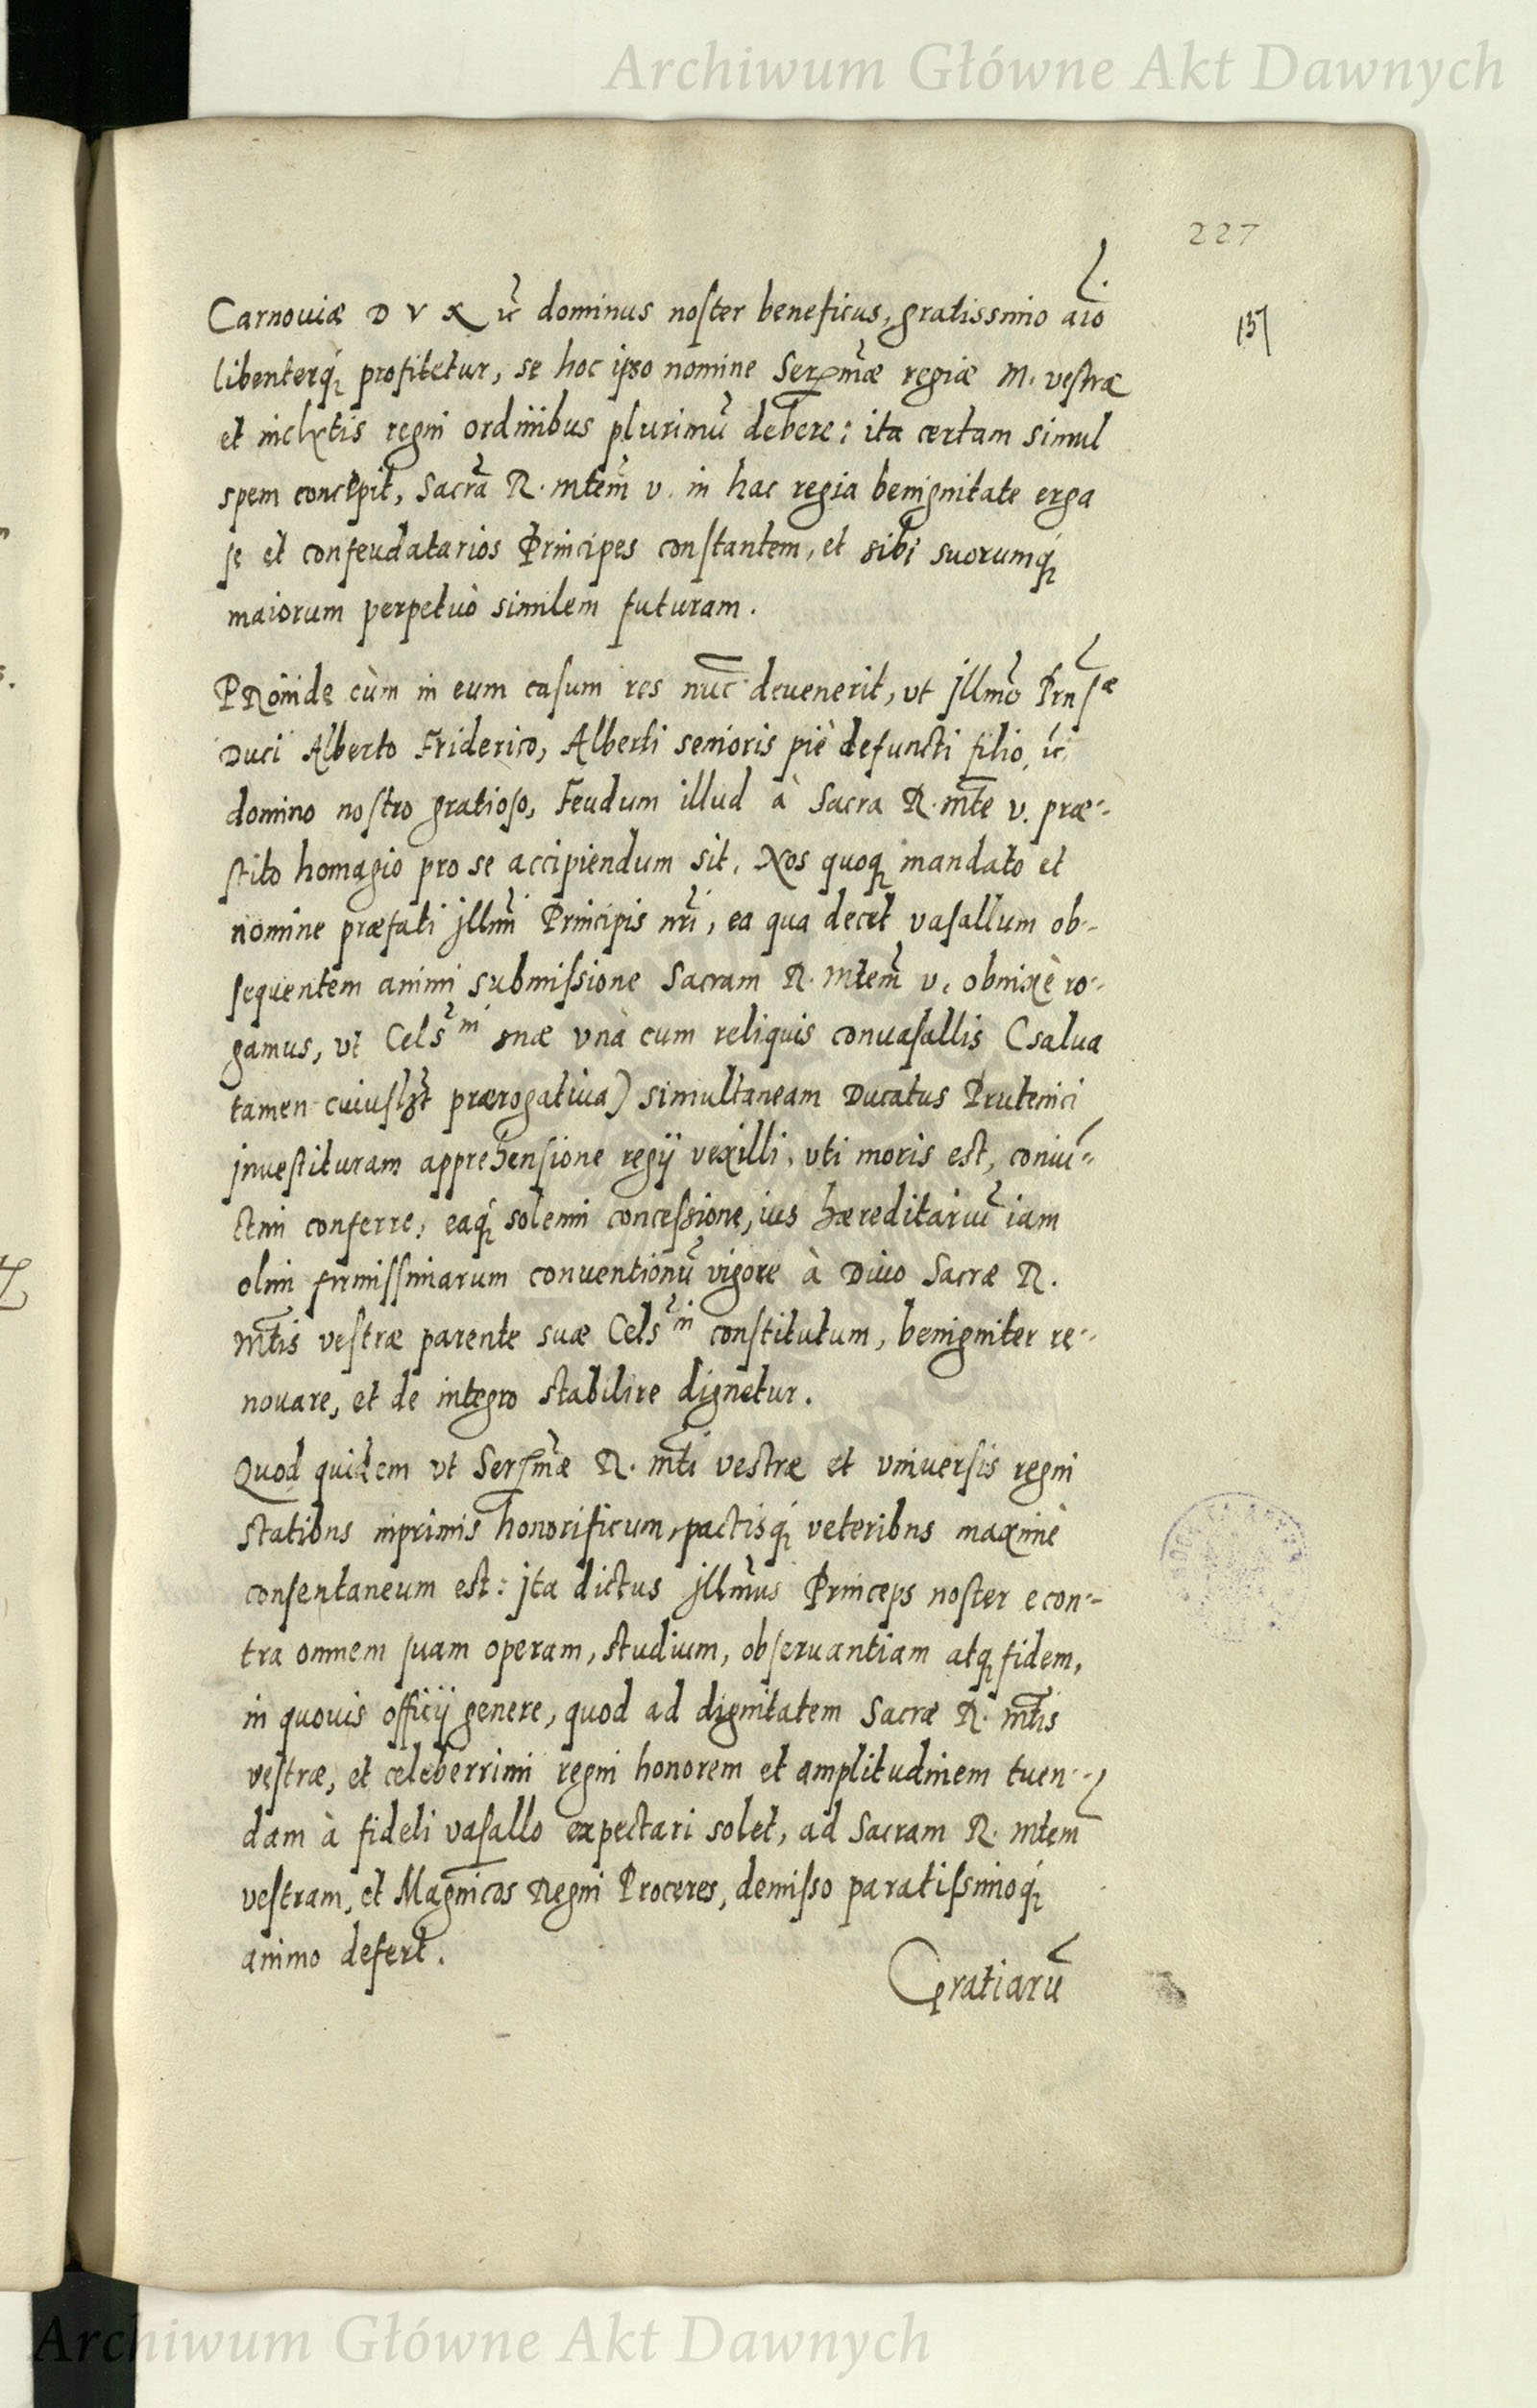 Archiwum Główne Akt Dawnych
227
157
Carnouiæ DVX ec̃ dominus noster beneficus, gratissimo aĩo
libenterq́ profitetur, se hoc ipso nomine Serᵐ̃æ regiæ M. vestræ
et inclytis regni ordinibus plurimũ debere: ita certam simul
spem concepit, Sacrã R. Mtem̃ v. in hac regia benignitate erga
se et confeudatarios Principes constantem, et sibi suorumq́
maiorum perpetuò similem futuram.
PRoinde cùm in eum casum res nũc deuenerit, vt jllm̃o Prñ
Duci Alberto Friderico, Alberti senioris piè defuncti filio, ec̃
domino nostro gratioso, Feudum illud à Sacra R. Mt̃e v. præ-
stito homagio pro se accipiendum sit, Nos quoq mandato et
nomine præfati jllmĩ Principis nrĩ, ea qua decet vasallum ob-
sequentem animi submissione Sacram R. Mtem̃ v. obnixè ro-
gamus, vt Cels̃ⁿⁱ suæ vnà cum reliquis conuasallis (salua
tamen cuiuslꝫt̃ prærogatiua) simultaneam Ducatus Prutenici
jnuestituram apprehensione regij vexilli, vti moris est, coniũ-
ctim conferre, eaq́ solenni concessione, ius hæreditariũ iam
olim firmissimarum conuentionũ vigore à Diuo Sacræ R.
Mt̃is vestræ parente suæ Cels̃ⁿⁱ constitutum, benigniter re-
nouare, et de integro stabilire dignetur.
Quod quidem vt Serᵐ̃æ R. Mt̃i vestræ et vniuersis regni
statibus inprimis honorificum, pactisq́ veteribus maximè
consentaneum est: jta dictus jllm̃us Princeps noster econ-
tra omnem suam operam, studium, obseruantiam atq fidem,
in quouis officij genere, quod ad dignitatem Sacræ R. Mt̃is
vestræ, et celeberrimi regni honorem et amplitudinem tuen-
dam à fideli vasallo expectari solet, ad Sacram R. Mtem̃
vestram, et Magñicos Regni Proceres, demisso paratissimoq́
animo defert.
Gratiarũ
Archiwum Główne Akt Dawnych